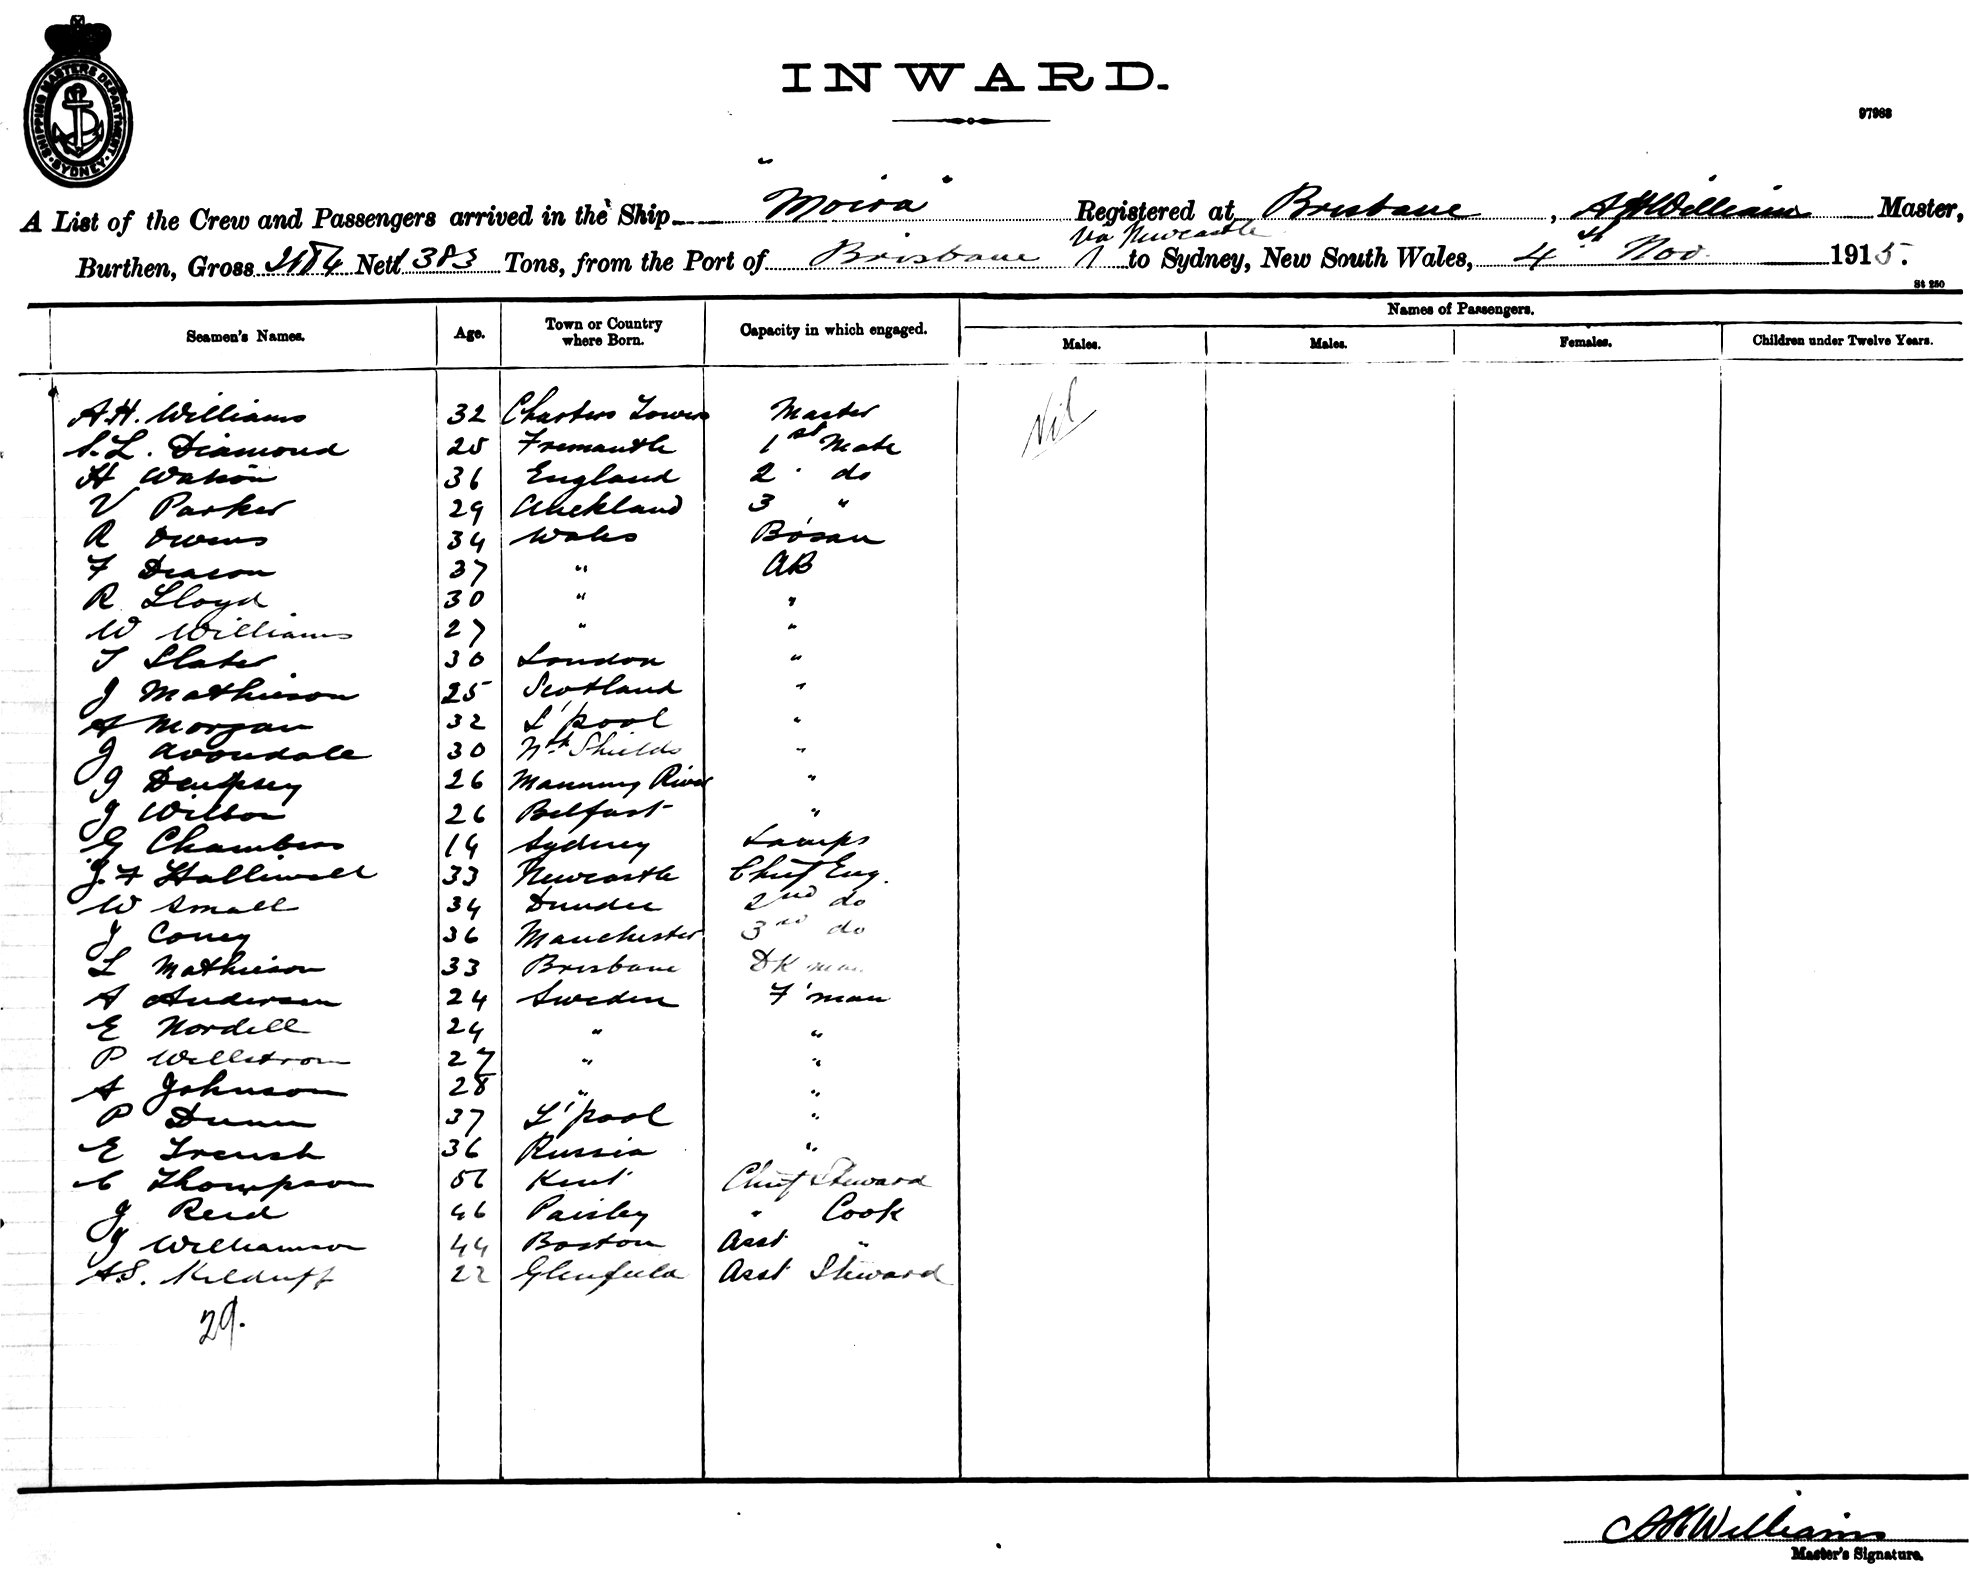 SHIPPING MASTERS DEPARTMENT · SYDNEY ·
INWARD.
97988
A List of the Crew and Passengers arrived in the Ship "Moira" Registered at Brisbane, A H Williams Master,
via Newcastle
Burthen, Gross 2184 Nett 1383 Tons, from the Port of Brisbane to Sydney, New South Wales, 4th Nov 1915.
St 250
Seamen's Names. Age. Town or Country where Born. Capacity in which engaged. Names of Passengers.
Males. Males. Females. Children under Twelve Years.
A.H. Williams 32 Charters Towers Master Nil
S.L. Diamond 25 Fremantle 1st Mate
H Watson 36 England 2 " do
V Parker 29 Auckland 3 "
R Owens 34 Wales Bosan
F Deacon 37 " AB
R Lloyd 30 " "
W Williams 27 " "
T Slater 30 London "
J Mathieson 25 Scotland "
A Morgan 32 L'pool "
J Avondale 30 Nth Shields "
J Dempsey 26 Manning River "
J Wilson 26 Belfast "
G Chambers 19 Sydney Lamps
J.F Halliwell 33 Newcastle Chief Eng.
W Small 34 Dundee 2nd do
J Coney 36 Manchester 3rd do
L Mathieson 33 Brisbane DKman
A Andersen 24 Sweden F'man
E Nordell 24 " "
P Wellstrom 27 " "
A Johnson 28 " "
P Dunn 37 L'pool "
E Trensh 36 Russia "
C Thompson 56 Kent Chief Steward
J Reid 46 Paisley " Cook
J Williamson 44 Boston Asst "
A.S. Kilduff 22 Glenfield Asst Steward
29.
A H Williams
Master's Signature.